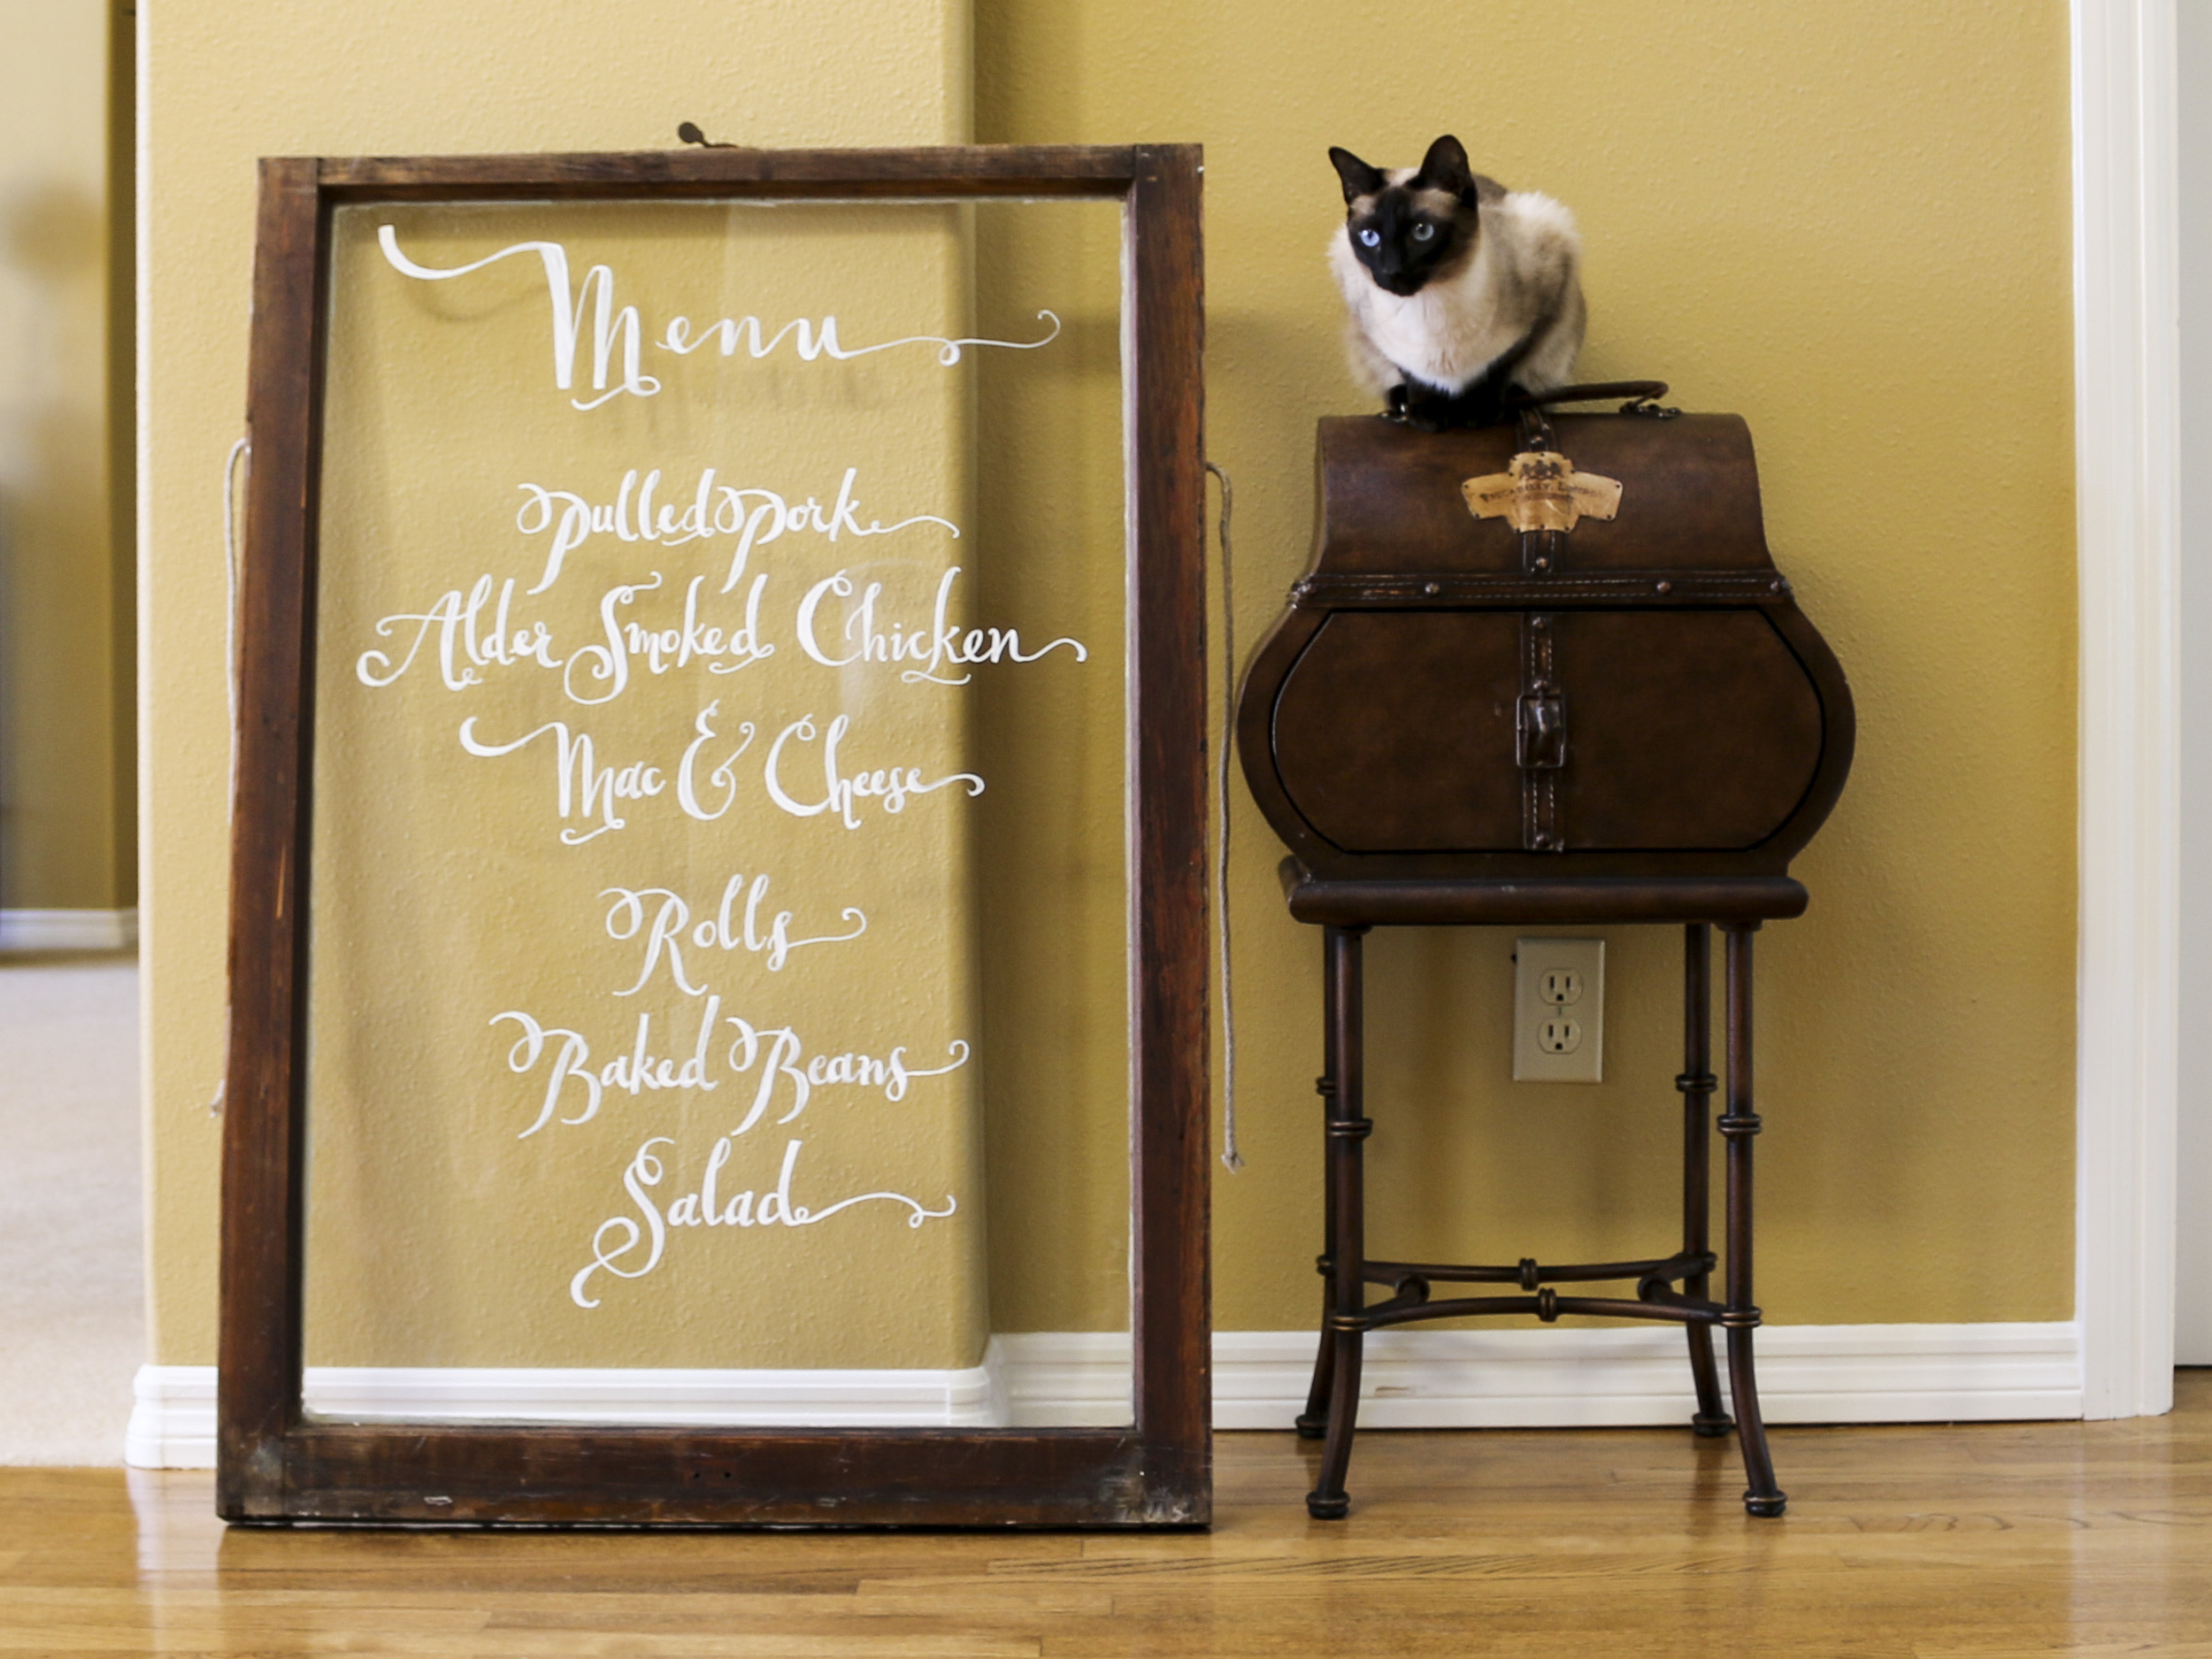 Menu
Pulled Pork
Alder Smoked Chicken
Mac & Cheese
Rolls
Baked Beans
Salad